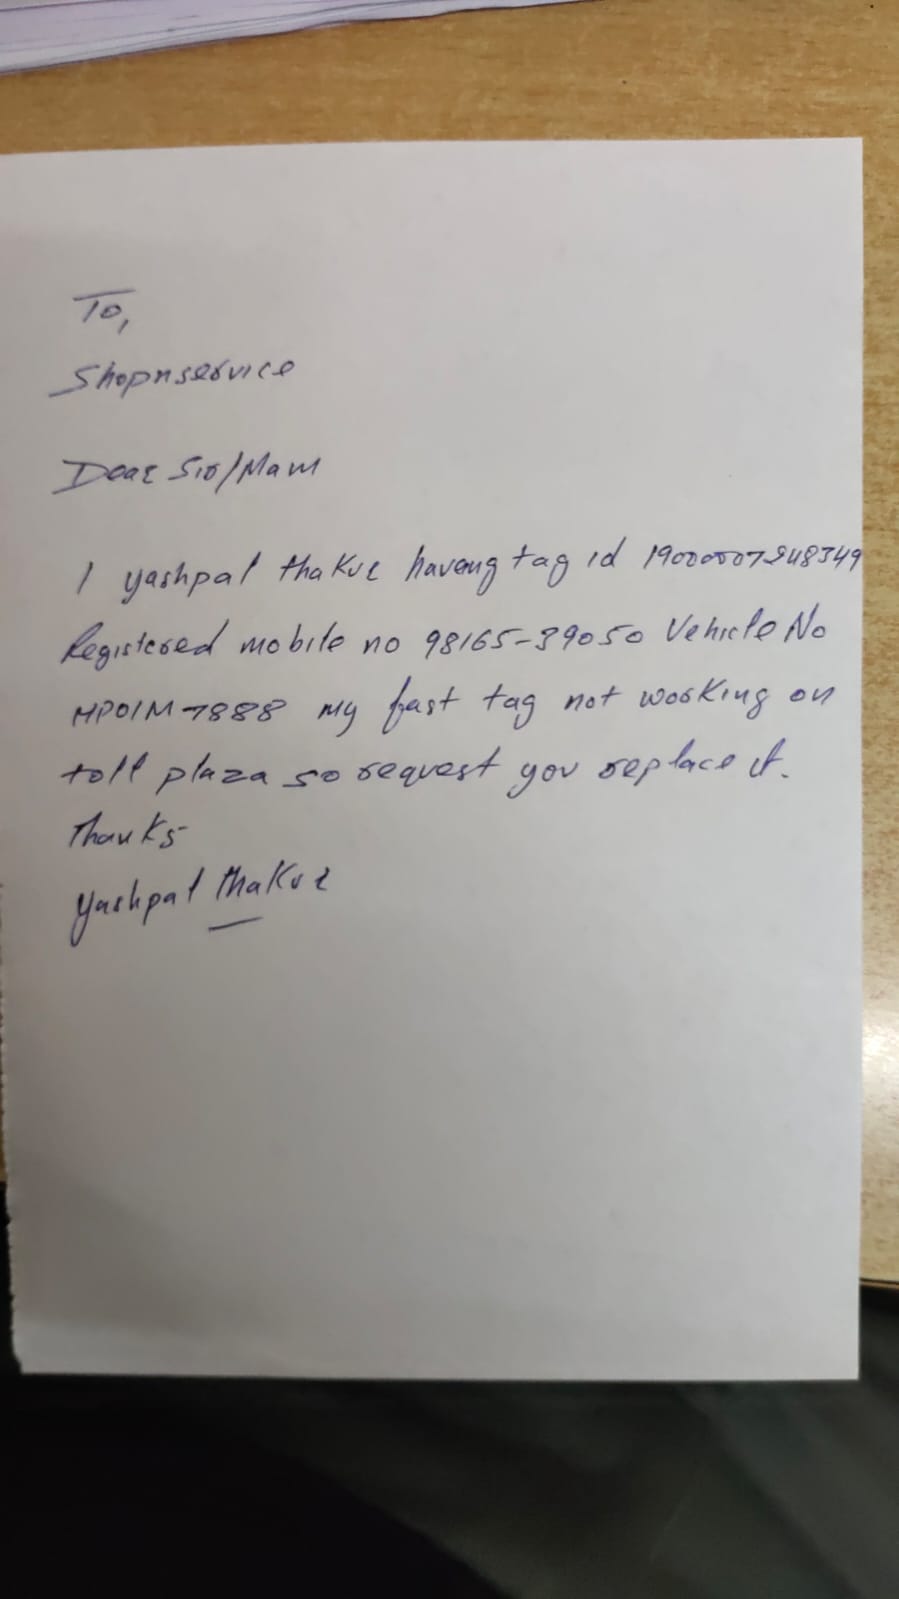 To,
Shopnservice
Dear Sir/Mam
I yashpal thakur haveng tag id
Registered mobile no 98165-39050 Vehicle No
HP01M-7888 my fast tag not working on
toll plaza so request you replace it.
Thanks
yashpal thakur